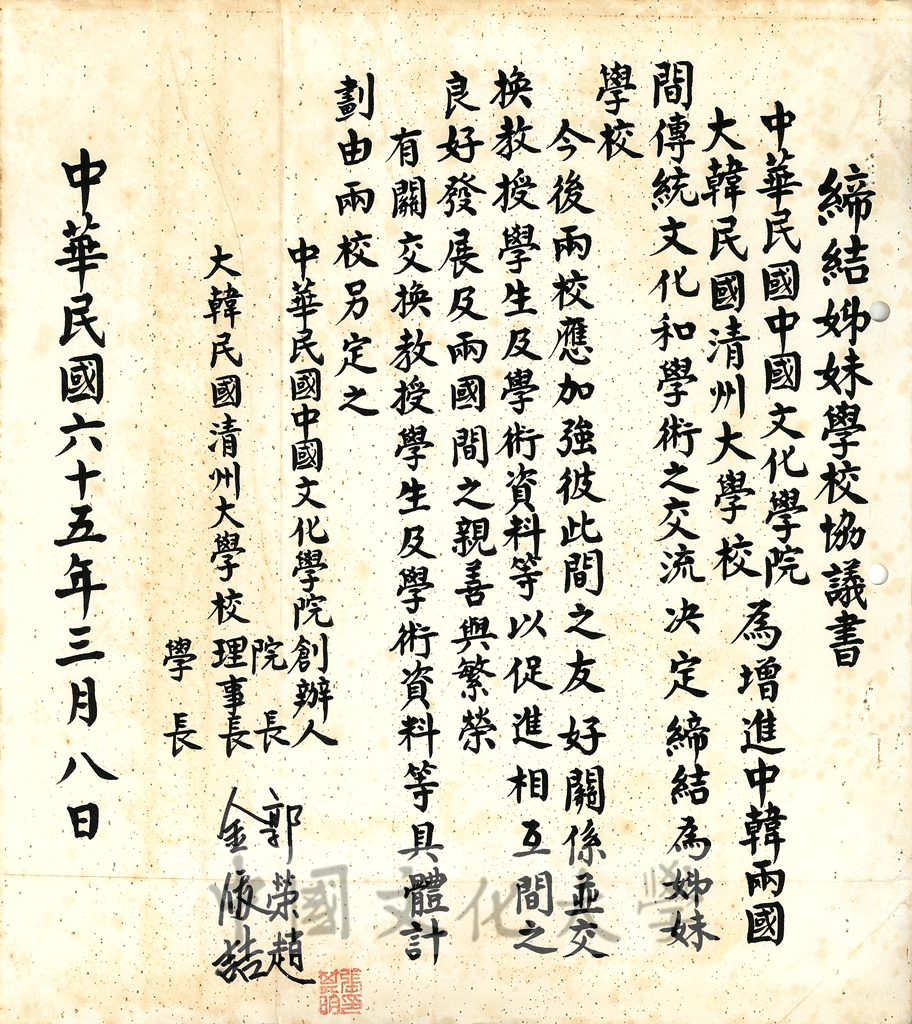 締結姊妹學校協議書
中華民國中國文化學院
大韓民國清州大學校
為增進中韓兩國
間傳統文化和學術之交流決定締結為姊妹
學校
今後兩校應加強彼此間之友好關係並交
換教授學生及學術資料等以促進相互間之
良好發展及兩國間之親善與繁榮
有關交換教授學生及學術資料等具體計
劃由兩校另定之
中華民國中國文化學院創辦人
院長
郭榮趙
大韓民國清州大學校理事長
金俊喆
學長
中華民國六十五年三月八日
中國文化大學